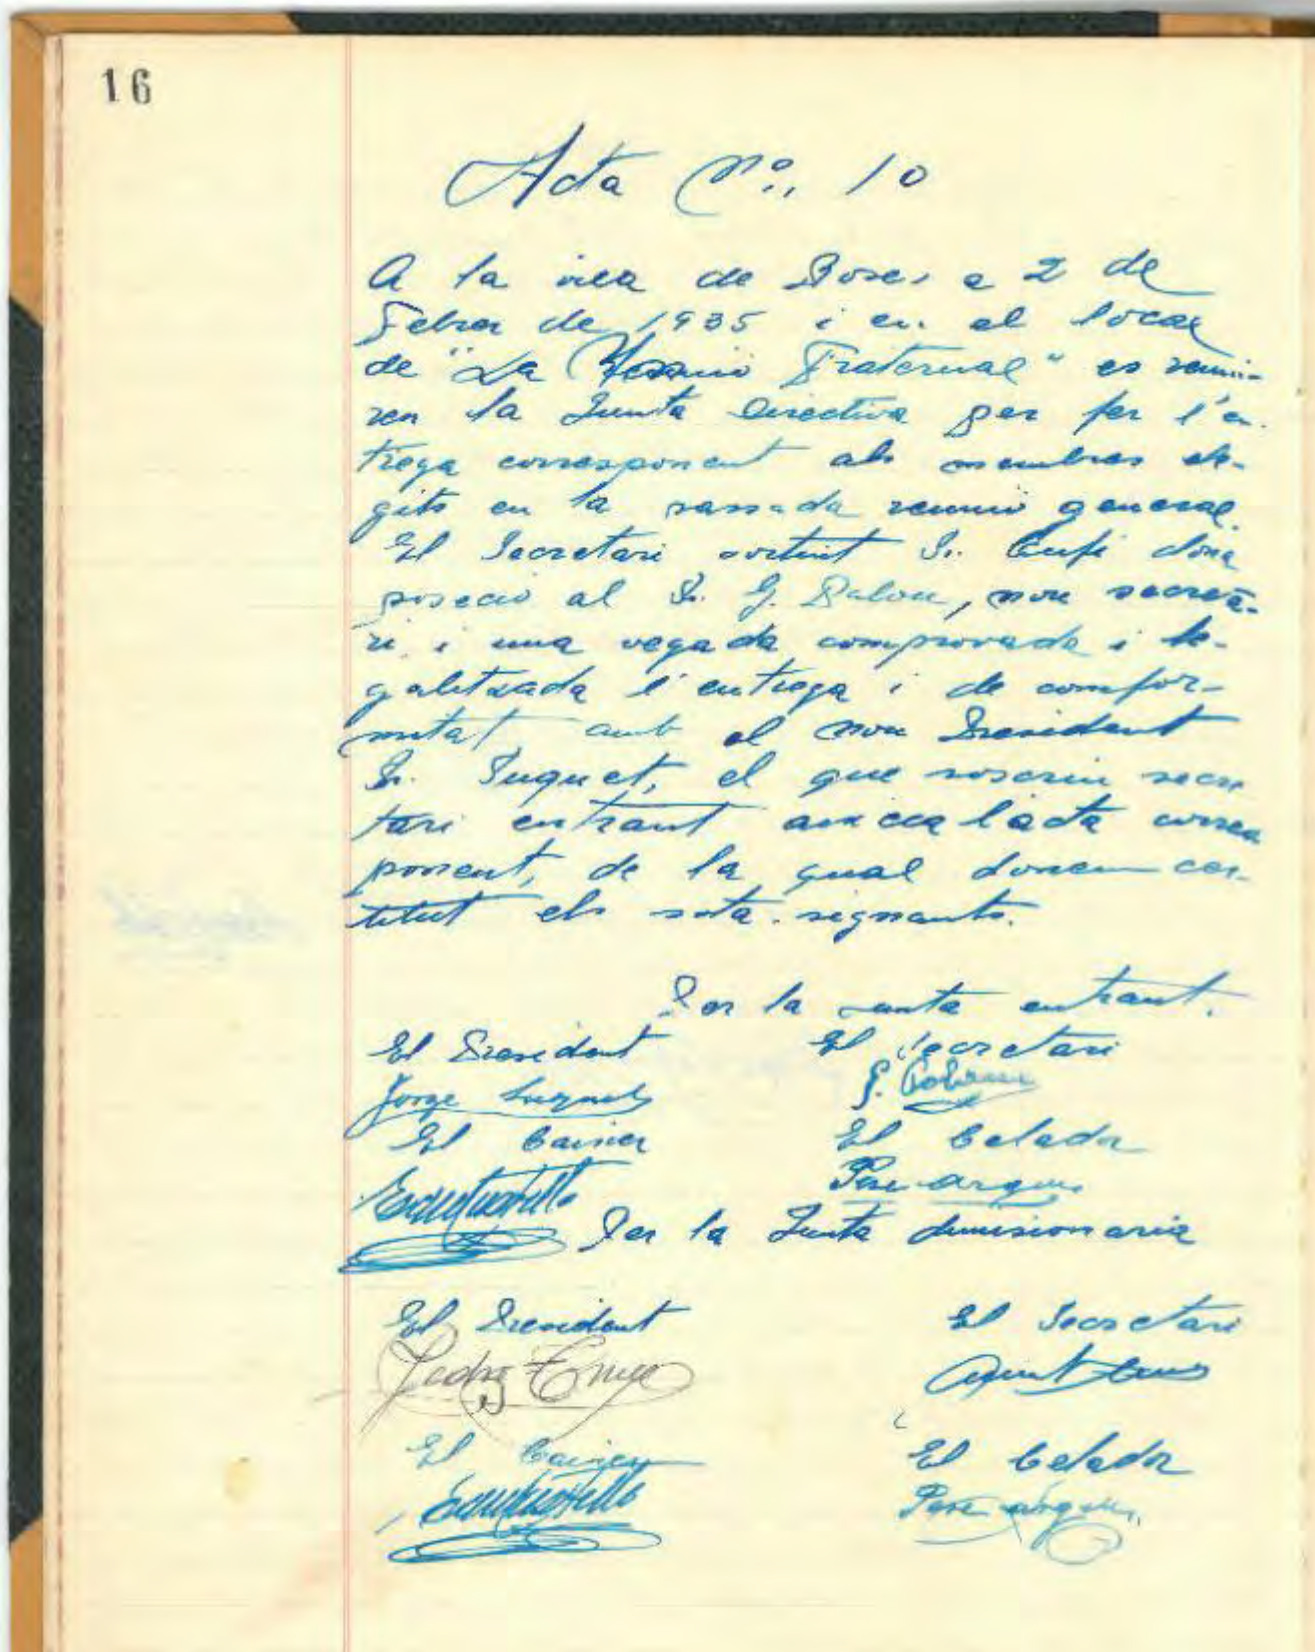 16
Acta Nº., 10
A la vila de Roses a 2 de
Febrer de 1935 i en el local
de "La Fraternal" es reuni-
ren la Junta Directiva per fer l'en-
trega corresponent als membres ele-
gits en la passada reunió general.
El Secretari sortint Sr. Cufí dona
poseció al Sr. G. Palou, nou secreta-
ri, i una vegada comprovada i le-
galitzada l'entrega i de confor-
mitat amb el nou President
Sr. Suquet, el que soscriu secre
tari entrant aixeca l'acta corres
ponent, de la qual donem cer-
titut els sota-signants.
Per la junta entrant.
El President El Secretari
Jorge Suquet
El Caixer El Celador
Pere
Per la Junta dimisionaria
El President El Secretari
Pedro
El Caixer El Celador
Pere